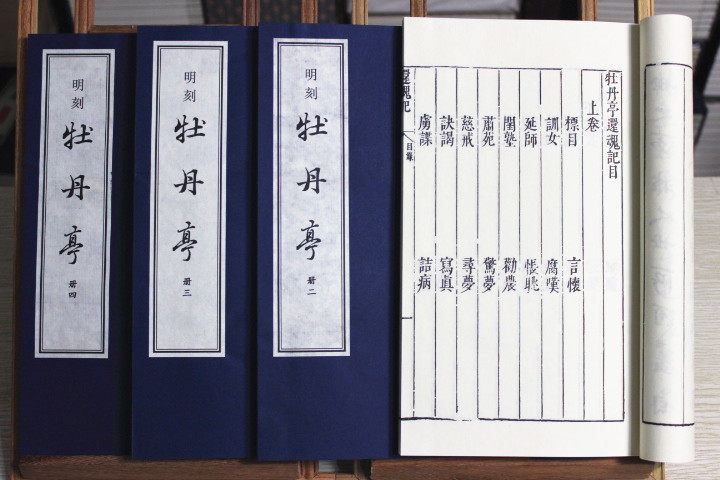 牡丹亭還魂記目
上卷
標目 言懷
訓女 腐嘆
延師 悵眺
閨塾 勸農
肅苑 驚夢
慈戒 尋夢
訣謁 寫眞
虜諜 詰病
還魂記 目錄 一
明刻
牡丹亭
册二
明刻
牡丹亭
册三
明刻
牡丹亭
册四